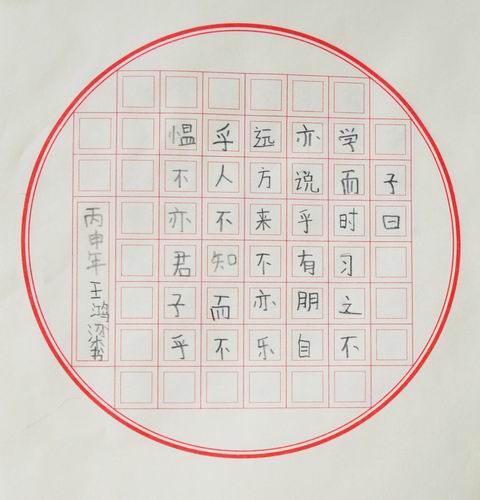 子曰
学而时习之不
亦说乎有朋自
远方来不亦乐
乎人不知而不
愠不亦君子乎
丙申年王鸿梁书